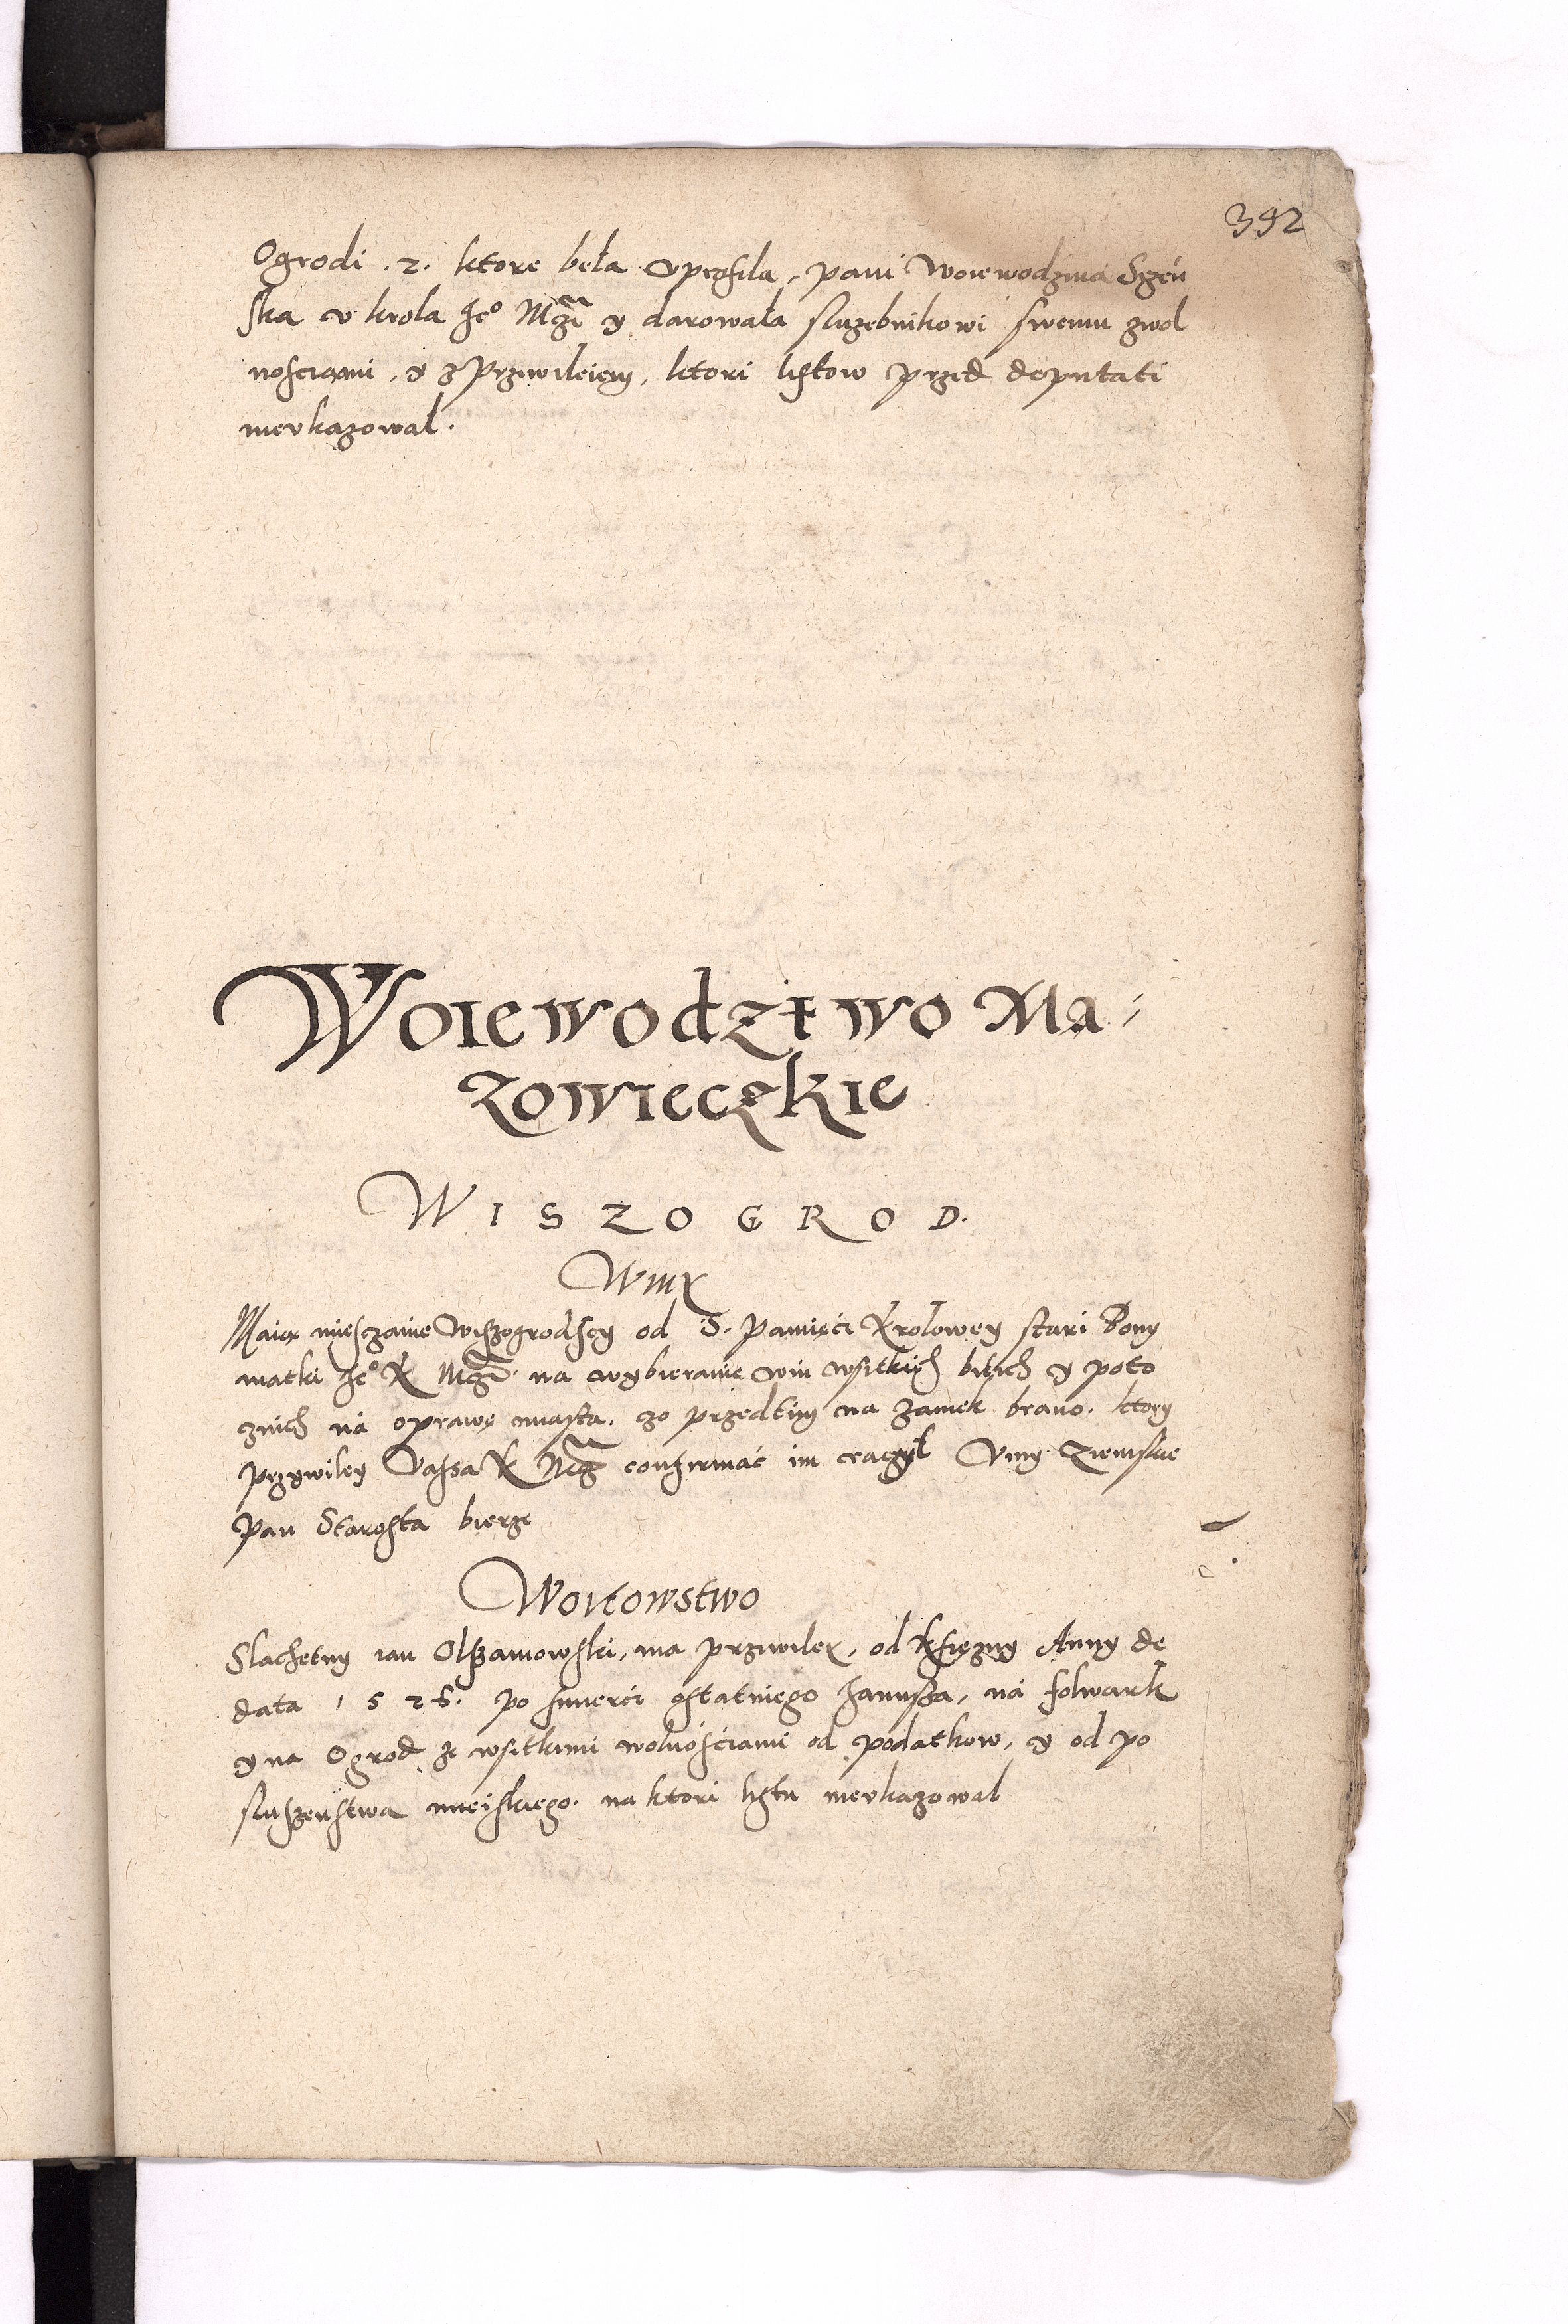 392
Ogrodi .2. ktore beła vprosiła, pani Woiewodzina Szeń
ska v krola Jeº Mczi y darowała sluzebnikowi swemu zwol
nosciami, y z Przwileiem, ktori listow przed deputati
nievkazował.
Woiewodztwo Ma-
zowieczkie
WISZOGROD.
Winy
Maią miesczanie Wiszogrodscy od S. Pamięci Krolowey stari Bony
matki Jeº K Mczi na wybieranie win wsitkich bitich y poto
cznich na oprawę miasta. czo przedtim na zamek brano. ktory
przywiley Vassa K Mcz confirmać im raczył Viny Ziemskie
Pan Starosta bierze
Woitowstwo
Slachetny ian Olszamowski, ma przwiley, od Księzny Anny de
data 1526. po smierci ostatniego Janusza, na folwark
y na Ogrod ze wsitkimi wolnościami od podatkow, y od po
sluszenstwa mieiskiego. na ktori listu nievkazowal